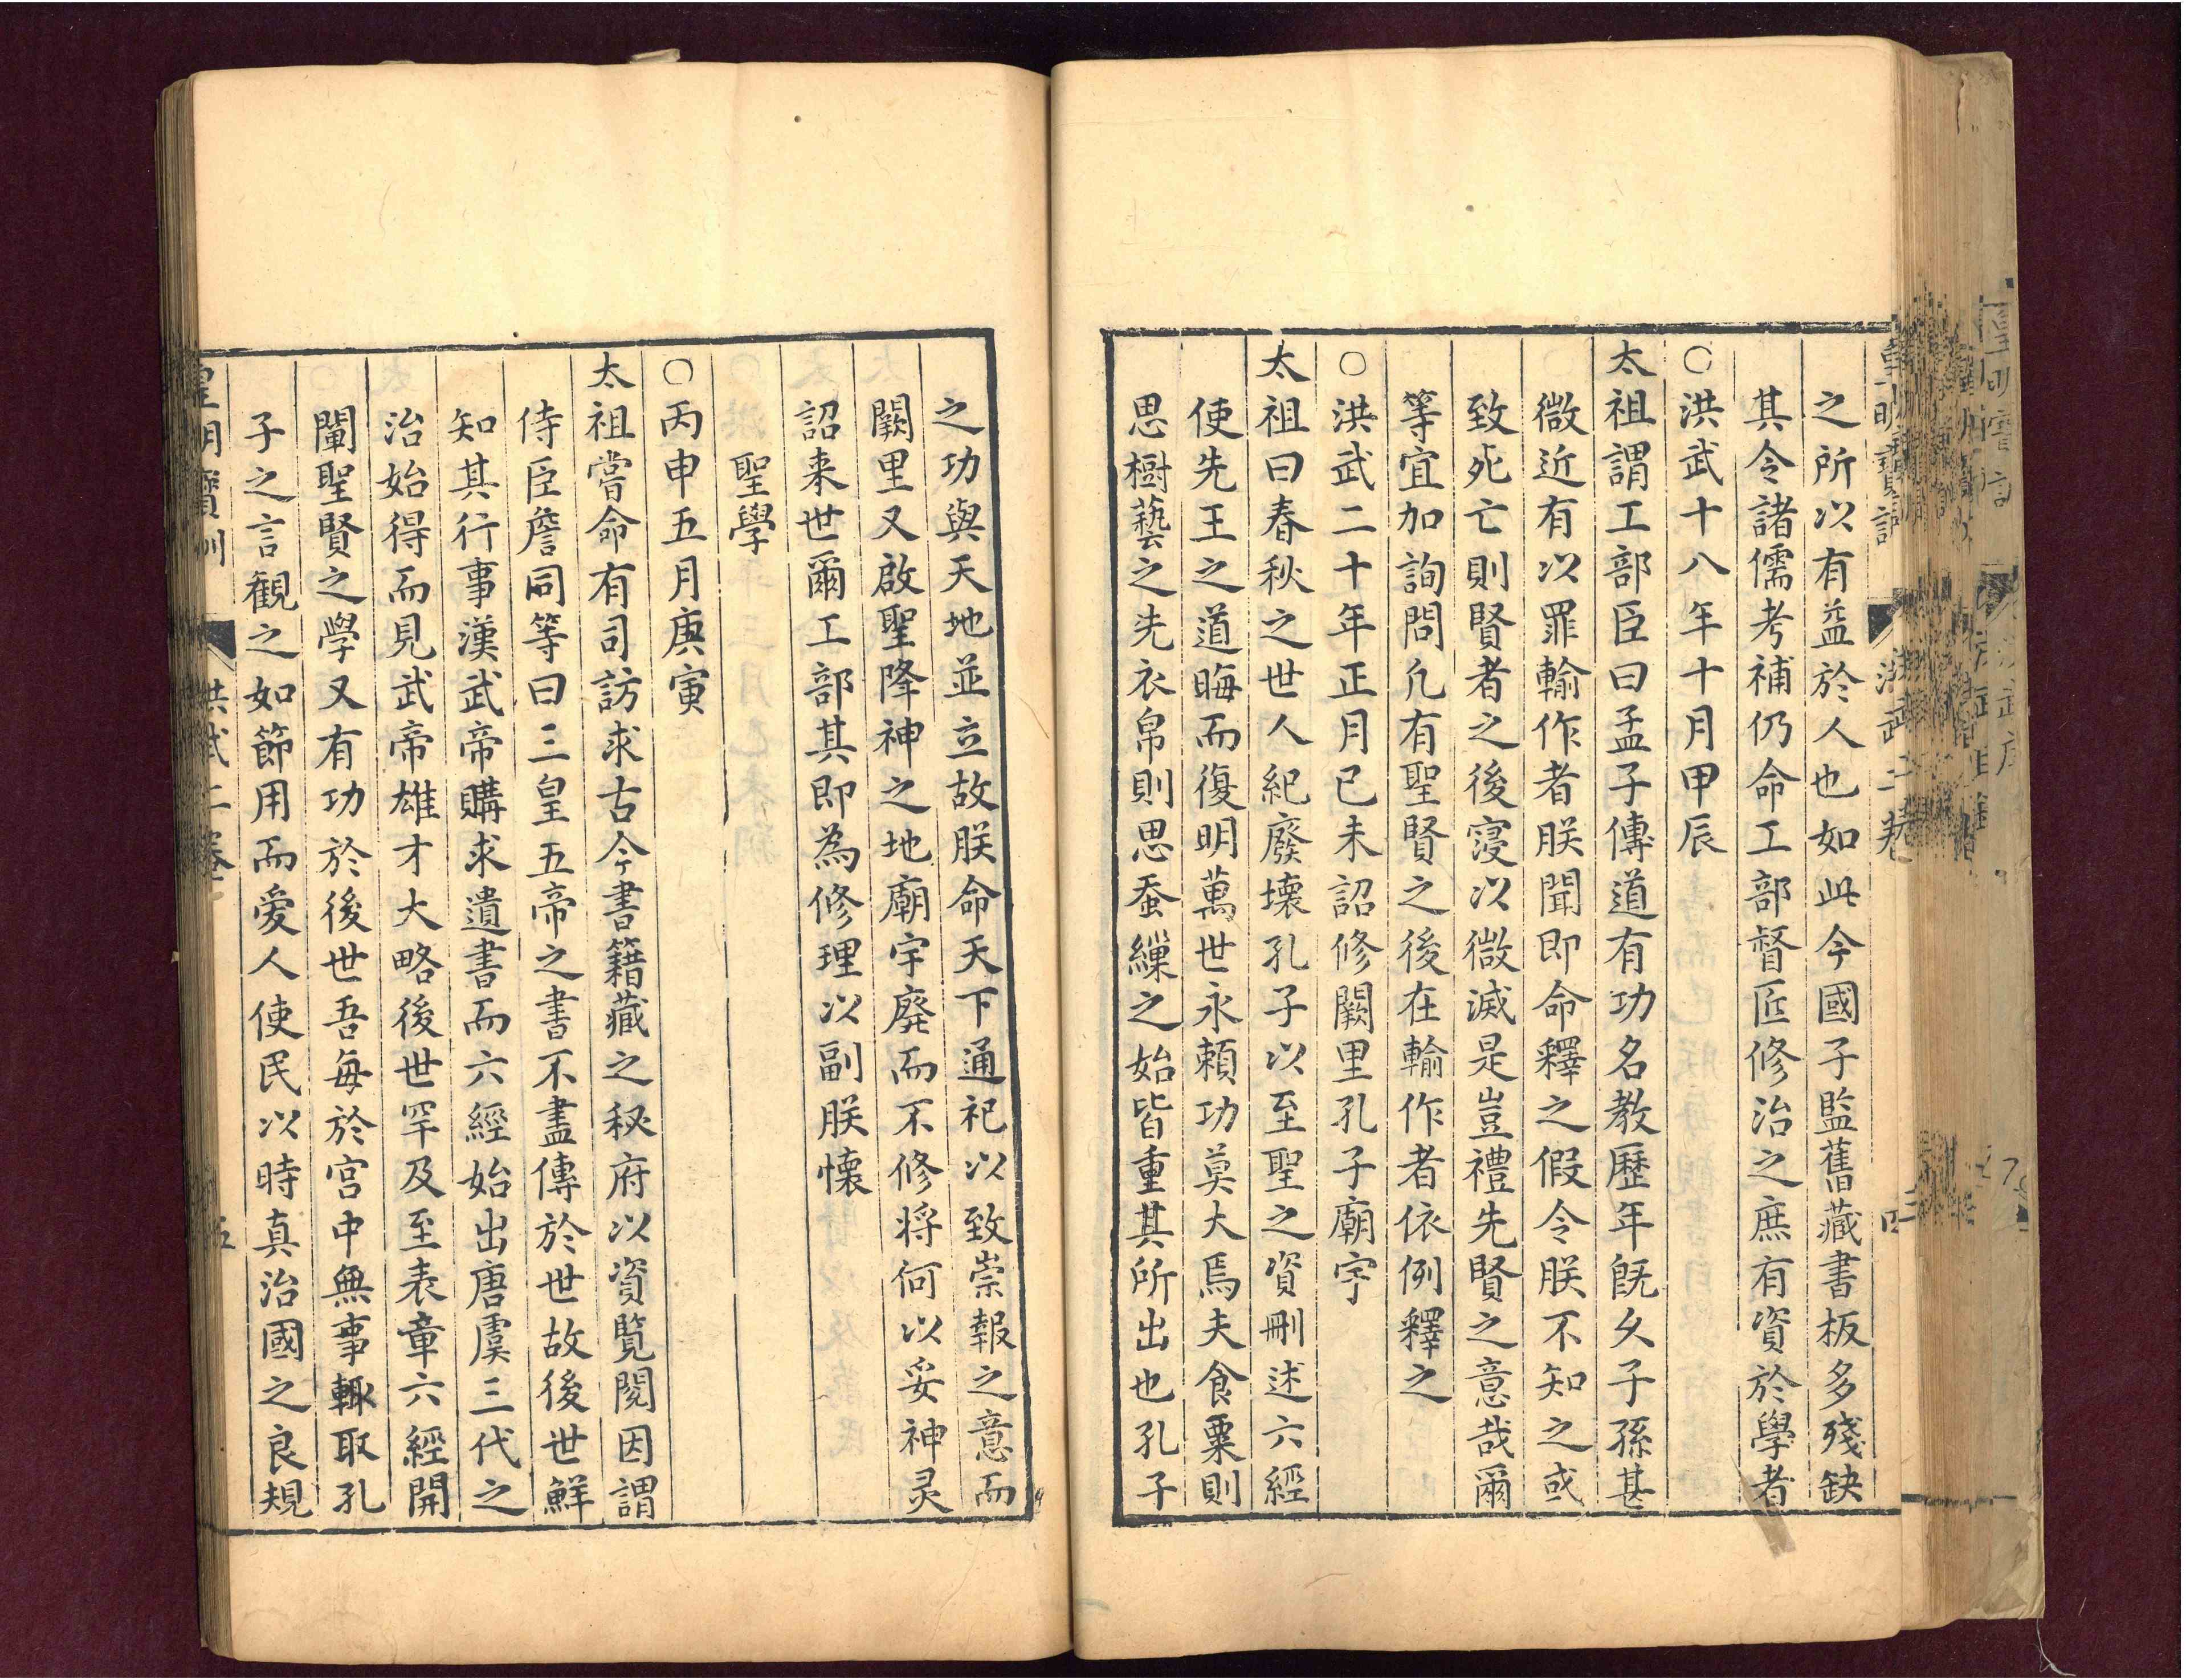 皇明寶訓 洪武二卷 四
之所以有益於人也如此今國子監舊藏書板多殘缺
其令諸儒考補仍命工部督匠修治之庶有資於學者
○洪武十八年十月甲辰
太祖謂工部臣曰孟子傳道有功名教歷年旣久子孫甚
微近有以罪輸作者朕聞即命釋之假令朕不知之或
致死亡則賢者之後寖以微滅是豈禮先賢之意哉爾
等宜加詢問凢有聖賢之後在輸作者依例釋之
○洪武二十年正月已未詔修闕里孔子廟宇
太祖曰春秋之世人紀廢壞孔子以至聖之資刪述六經
使先王之道晦而復明萬世永頼功莫大焉夫食粟則
思樹藝之先衣帛則思蚕繅之始皆重其所出也孔子
之功與天地並立故朕命天下通祀以致崇報之意而
闕里又啟聖降神之地廟宇廢而不修将何以妥神灵
詔来世爾工部其即為修理以副朕懐
聖學
○丙申五月庚寅
太祖嘗命有司訪求古今書籍藏之秘府以資覧閱因謂
侍臣詹同等曰三皇五帝之書不盡傳於世故後世鮮
知其行事漢武帝購求遺書而六經始出唐虞三代之
治始得而見武帝雄才大略後世罕及至表章六經開
闡聖賢之學又有功於後世吾每於宮中無事輙取孔
子之言觀之如節用而愛人使民以時真治國之良規
皇明寶訓 洪武二卷 五